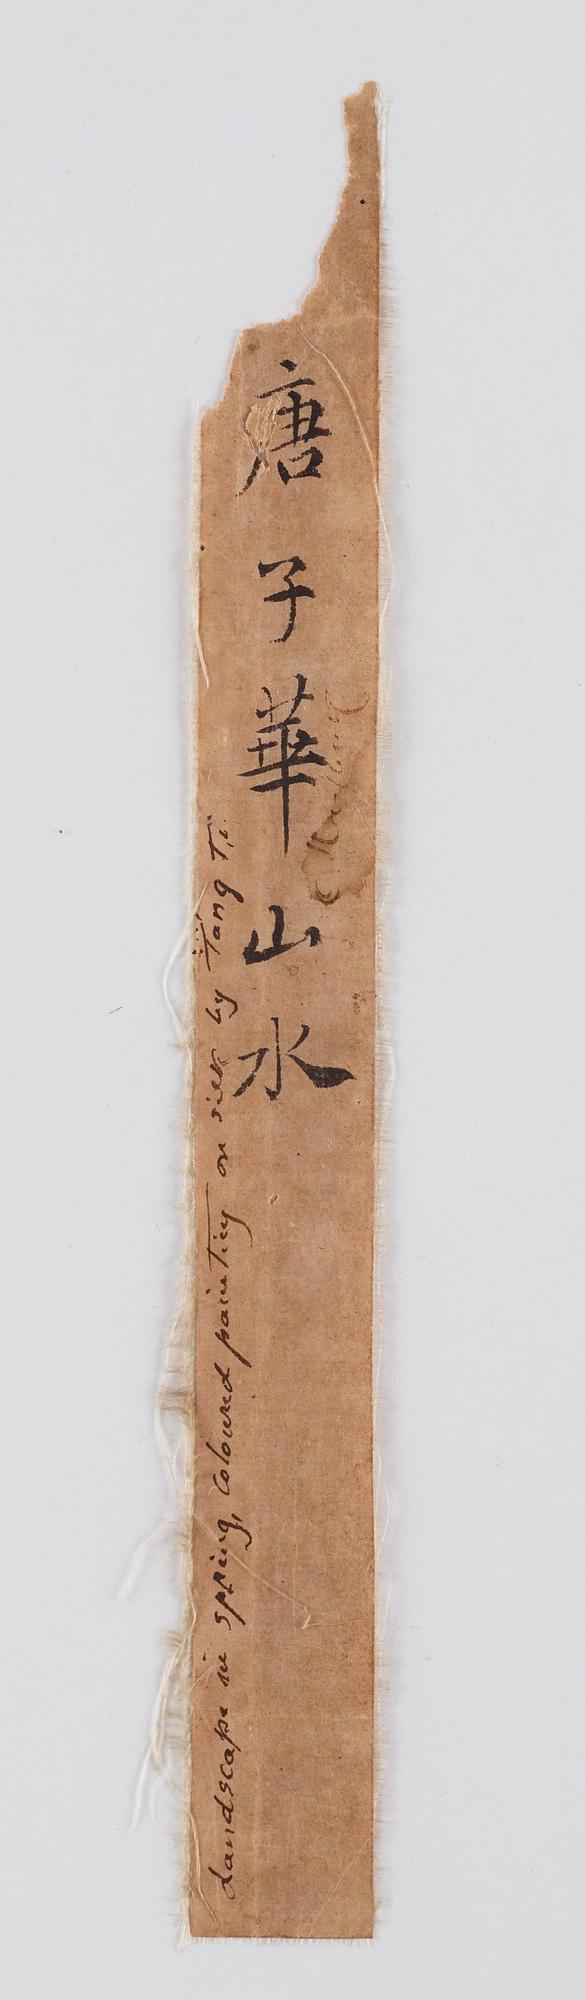 唐子華山水
Landscape in spping, coloured painting on silk by Tang Ti